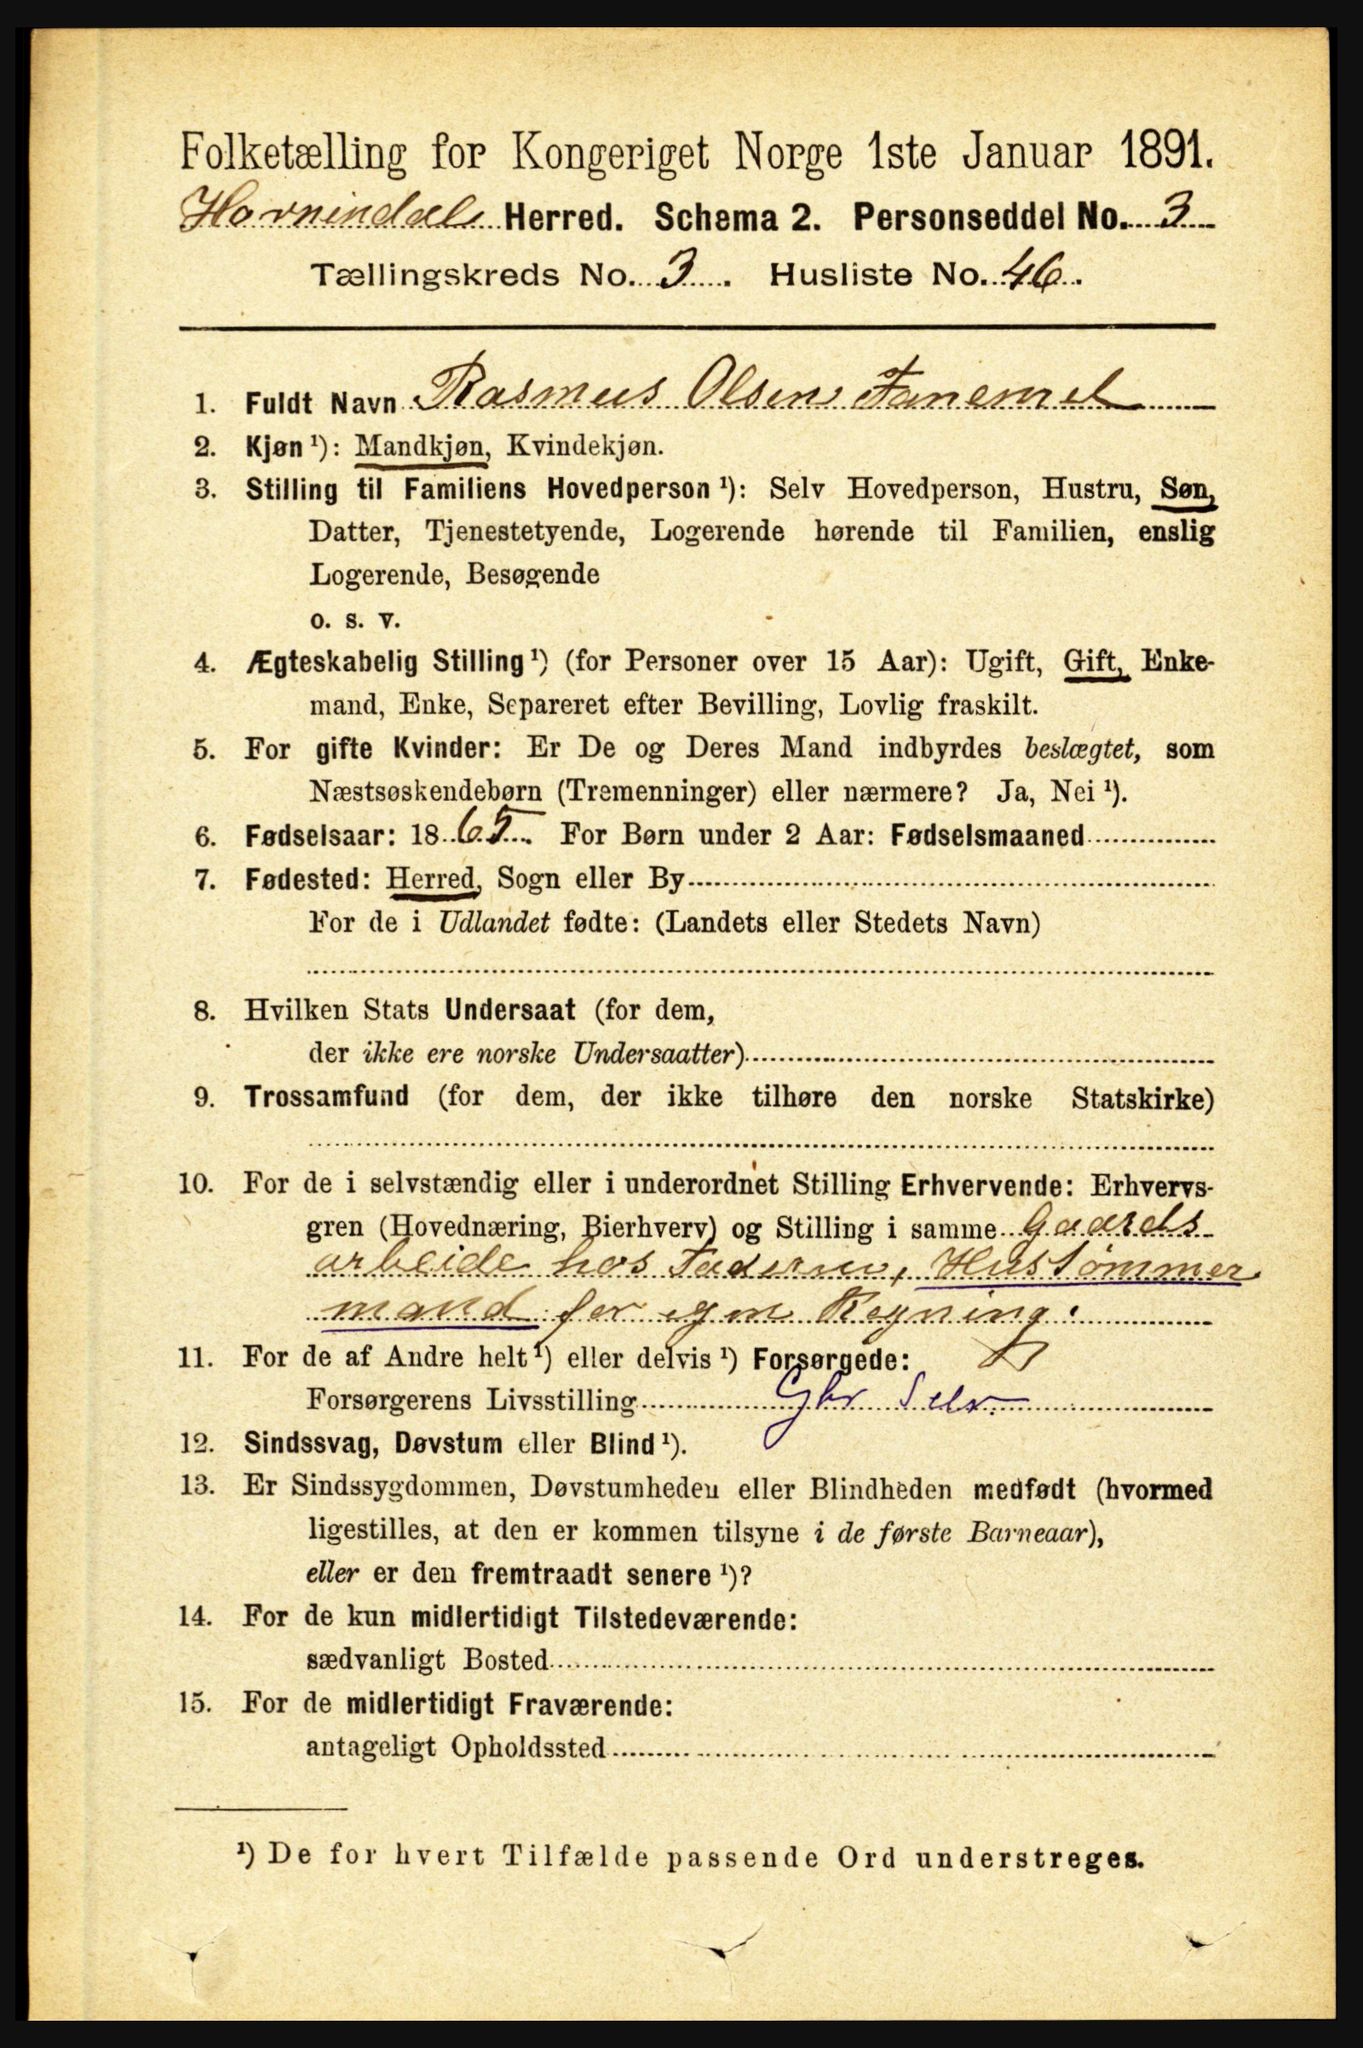 Folketælling for Kongeriget Norge 1ste Januar 1891.
Hornindal Herred. Schema 2. Personseddel No. 3
Tællingskreds No. 3. Husliste No. 46.
1. Fuldt Navn Rasmus Olsen Fanemel
2. Kjøn¹): Mandkjøn, Kvindekjøn.
3. Stilling til Familiens Hovedperson¹): Selv Hovedperson, Hustru, Søn,
Datter, Tjenestetyende, Logerende hørende til Familien, enslig
Logerende, Besøgende
o. s. v.
4. Ægteskabelig Stilling¹) (for Personer over 15 Aar): Ugift, Gift, Enke-
mand, Enke, Separeret efter Bevilling, Lovlig fraskilt.
5. For gifte Kvinder: Er De og Deres Mand indbyrdes beslægtet, som
Næstsøskendebørn (Tremenninger) eller nærmere? Ja, Nei¹).
6. Fødselsaar: 1865. For Børn under 2 Aar: Fødselsmaaned
7. Fødested: Herred, Sogn eller By
For de i Udlandet fødte: (Landets eller Stedets Navn)
8. Hvilken Stats Undersaat (for dem,
der ikke ere norske Undersaatter)
9. Trossamfund (for dem, der ikke tilhøre den norske Statskirke)
10. For de i selvstændig eller i underordnet Stilling Erhvervende: Erhvervs-
gren (Hovednæring, Bierhverv) og Stilling i samme Gaards
arbeide hos Faderen, Hustømmer
mand for egen Regning.
11. For de af Andre helt¹) eller delvis¹) Forsørgede:
Forsørgerens Livsstilling Gbr Selv.
12. Sindssvag, Døvstum eller Blind¹).
13. Er Sindssygdommen, Døvstumheden eller Blindheden medfødt (hvormed
ligestilles, at den er kommen tilsyne i de første Barneaar),
eller er den fremtraadt senere¹)?
14. For de kun midlertidigt Tilstedeværende:
sædvanligt Bosted
15. For de midlertidigt Fraværende:
antageligt Opholdssted
¹) De for hvert Tilfælde passende Ord understreges.